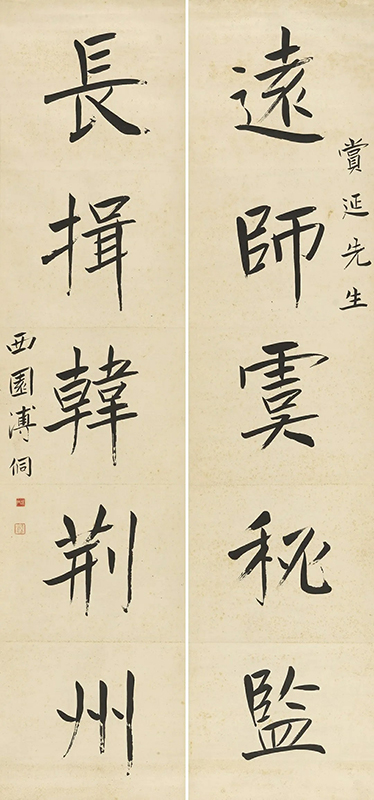 賞延先生
遠師虞秘監
長揖韓荊州
西園溥侗